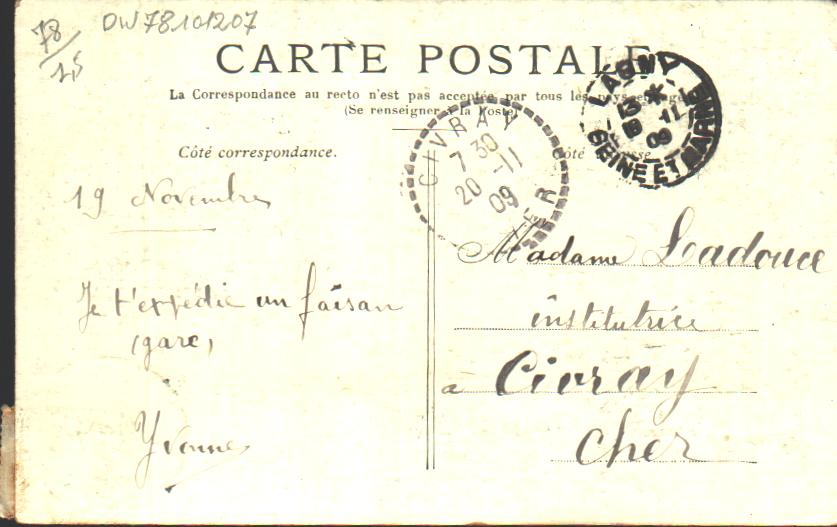 78/15
DW78101207
CARTE POSTALE
La Correspondance au recto n'est pas acceptée par tous les pays
(Se renseigner à la Poste)
Côté correspondance.
Côté
LAGNY
SEINE ET MARNE
11
09
CIVRAY
7 30
20 - 11
09
CHER
19 Novembre
Je t'expédie un faisan
(gare)
Yvonne
Madame Ladouce
institutrice
à Civray
Cher